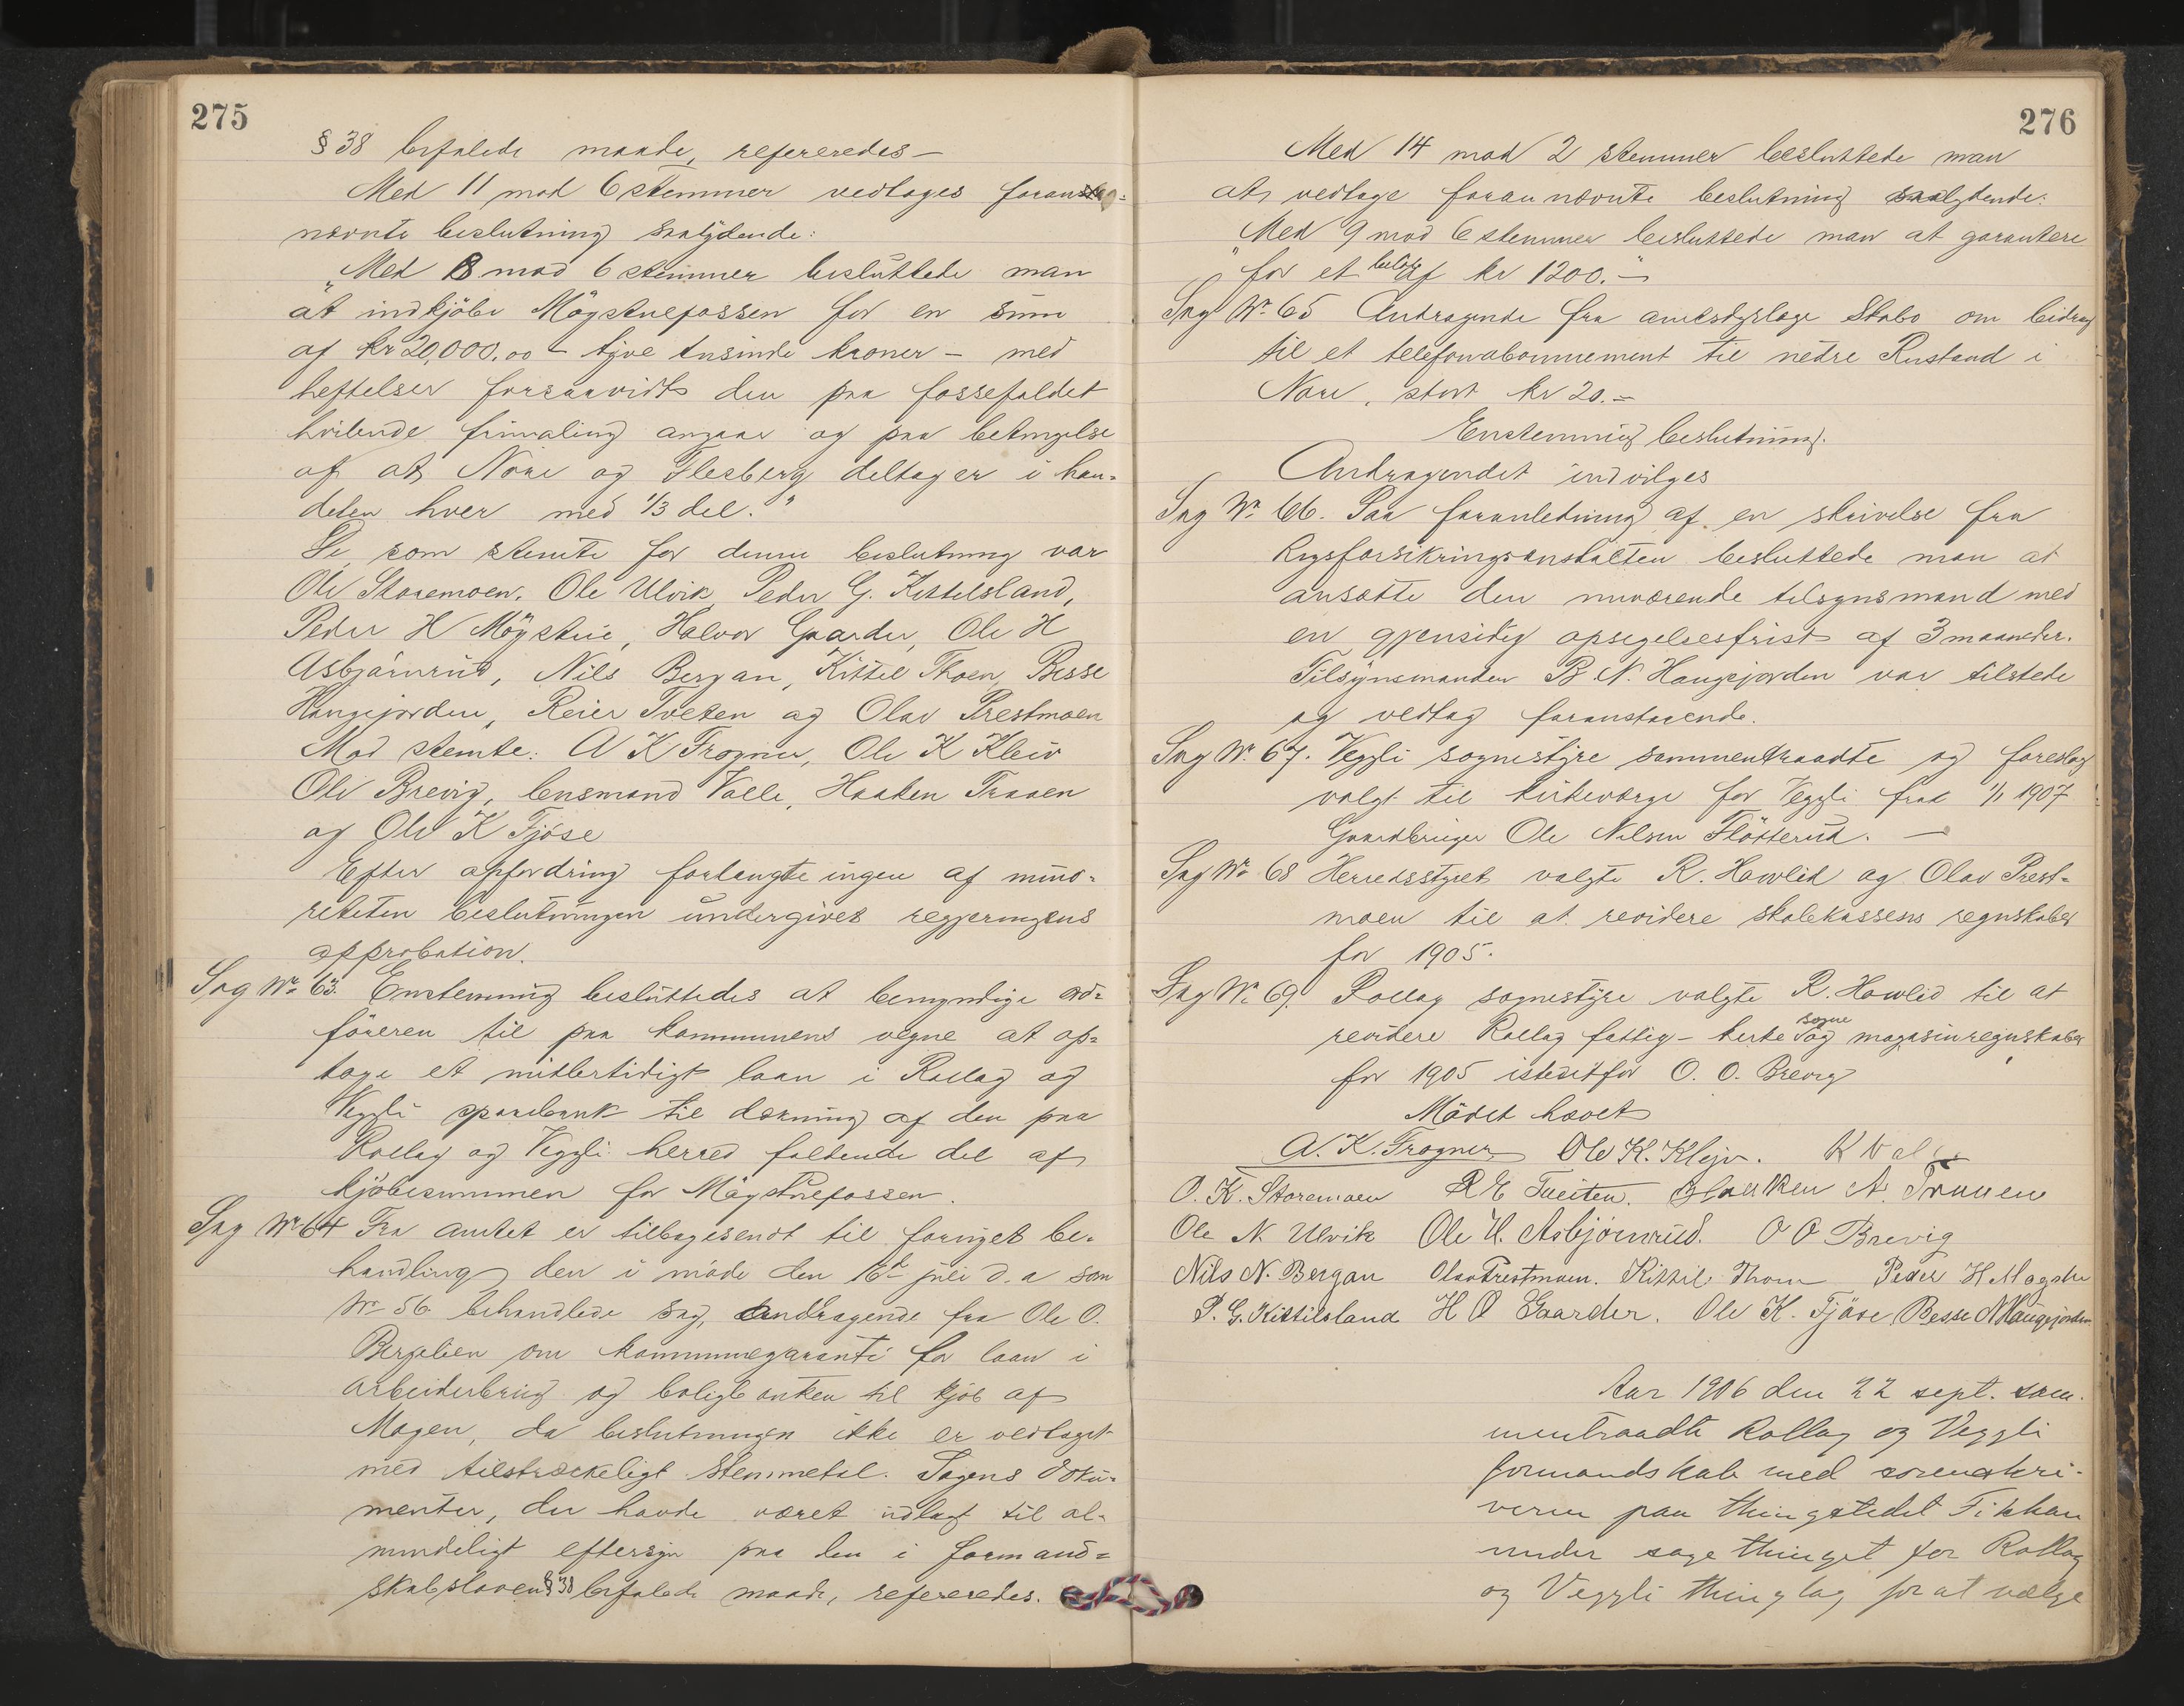 275
§ 38 befalede maade, refereredes —
Med 11 mod 6 stemmer vedtages foran-
nævnte beslutning saalydende:
„Med 8 mod 6 stemmer besluttede man
at indkjöbe Mögstuefossen for en sum
af kr 20,000.00 – tyve tusinde kroner – med
heftelser forsaavidt den paa fossefaldet
hvilende finvaling angaar og paa betingelse
af at Nore og Flesberg deltager i han-
delen hver med 1/3 del."
De som stemte for denne beslutning var
Ole Storemoen, Ole Ulvik Peder G. Kittelsland,
Peder H Mögstue, Halvor Gaarder, Ole H
Asbjörnrud, Nils Bergan, Kittil Thoen, Besse
Haugejorden, Reier Tveten og Olav Prestmoen
Mod stemte: A K Frogner, Ole K Kleiv
Ole Brevig, lensmand Valle, Haaken Traaen
og Ole K Fjöse
Efter opfordring forlangte ingen af mino-
riteten beslutningen undergivet regjeringens
approbation.
Sag Nr 63. Enstemmig besluttedes at bemyndige ord-
föreren til paa kommunens vegne at op-
tage et midlertidigt laan i Rollag og
Veggli sparebank til dækning af den paa
Rollag og Veggli herred faldende del af
kjöbesummen for Mögstuefossen.
Sag Nr 64 Fra amtet er tilbagesendt til fornyet be-
handling den i möde den 16de juli d. a som
Nr 56 behandlede sag, andragende fra Ole O.
Bergelien om kommunegaranti for laan i
arbeiderbrug og boligbanken til kjöb af
Mogen, da beslutningen ikke er vedtaget
med tilstrækkeligt stemmetal. Sagens doku-
menter, der havde været udlagt til al-
mindeligt eftersyn paa den i formand-
skabslovens § 38 befalede maade, refereredes.
276
Med 14 mod 2 stemmer besluttede man
at vedtage forannævnte beslutning saalydende:
„Med 9 mod 6 stemmer besluttede man at garantere
for et beløb af kr 1200.–"
Sag Nr 65 Andragende fra amtsdyrlæge Skabo om bidrag
til et telefonabonnement til nedre Rustand i
Nore, stort kr 20.–
Enstemmig beslutning.
Andragendet indvilges
Sag Nr 66. Paa foranledning af en skrivelse fra
Rigsforsikringsanstalten besluttede man at
ansætte den nuværende tilsynsmand med
en gjensidig opsigelsesfrist af 3 maaneder.
Tilsynsmanden B. N. Haugejorden var tilstede
og vedtog foranstaaende.
Sag Nr 67. Veggli sognestyre sammentraadte og foreslog
valgt til kirkeværge for Veggli fra 1/1 1907
Gaardbruger Ole Nilsen Flötterud. —
Sag Nr 68 Herredsstyret valgte R. Howlid og Olav Prest-
moen til at revidere skolekassens regnskaber
for 1905.
Sag Nr 69. Rollag sognestyre valgte R. Howlid til at
revidere Rollag fattig – kirke sogne og magasinregnskaber
for 1905 istedetfor O. O. Brevig
Mödet hævet
A. K. Frogner Ole K. Klejv. K Valle
O. K. Storemoen R E Tveiten. Haaken N. Traaen
Ole N. Ulvik Ole H. Asbjörnrud. O O Brevig
Nils N. Bergan Olav Prestmoen. Kittil Thoen Peder H Mögstu
P. G. Kittilsland H O Gaarder. Ole K. Fjöse Besse N Haugejorden
Aar 1906 den 22 sept. sam-
mentraadte Rollag og Veggli
formandskab med sorenskri-
veren paa thingstedet Fikkan
under sagethinget for Rollag
og Veggli thinglag for at vælge